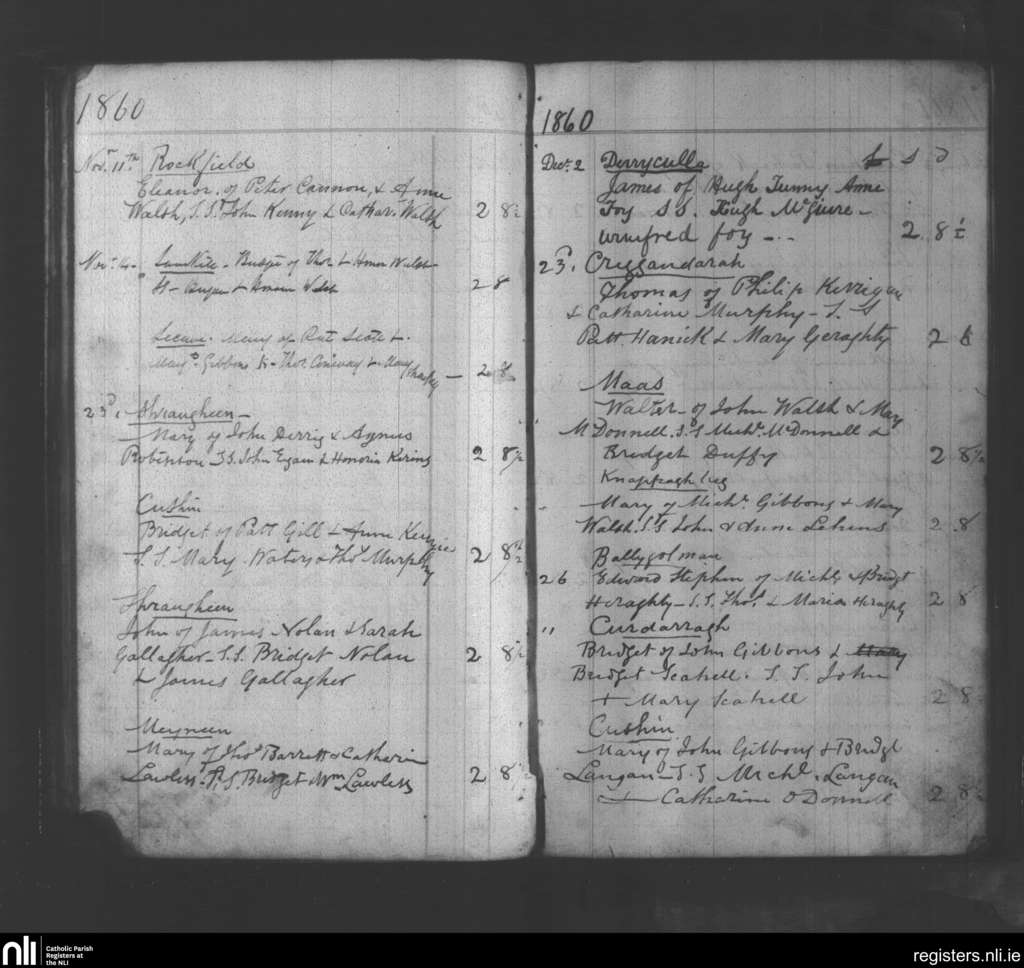 1860
Novr. 11th Rockfield
Eleanor of Peter Cannon, & Anne
Walsh, S.S. John Kenny & Cathari Walsh 2 8½
Novr. 4 Bridget of Thos. & Honor Walsh
2 8
Mary of Pat &
Mary Gibbons Ss Thos. Conway & Mary — 2 8
23d. Shraugheen —
Mary of John Derrig & Agnus
Robinson S.S. John Egan & Honoria Kering 2 8½
Cushin
Bridget of Patt Gill & Anne Kenzie
S. S. Mary Waters & Thos. Murphy 2 8½
Shraugheen
John of James Nolan & Sarah
Gallagher - S.S. Bridget Nolan 2 8½
& James Gallagher
Meyneen
Mary of Thos. Barrett & Catherin
Lawless. S.S. Bridget Wm Lawless 2 8
1860
Decr. 2 Derryculla £ S D
James of Hugh Tunny Anne
Foy S S. Hugh McGuire -
Winifred foy - .. 2 . 8 ½
23d. Creggandarah
Thomas of Philip Kerrigan
& Catharine Murphy - S. S
Patt Hanick & Mary Geraghty 2 8
Maas
Walter - of John Walsh & Mary
McDonnell. S.S Michl. McDonnell &
Bridget Duffy 2 8½
Knappagh
Mary of Michl. Gibbons & Mary
Walsh. S.S John & Anne Lehins 2 8
Ballygolman
26 Edward Stephen of Michl. & Bridgt
Heraghty - S.S. Thos. & Maria Heraghty 2 8
" Curdarragh
Bridget of John Gibbons & Mary
Bridget Scahell. S. S. John
+ Mary Scahell 2 8
Cushin
Mary of John Gibbons & Bridgt
Langan - S.S Michl. Langan
& Catharine O Donnell 2 8
nli
Catholic Parish
Registers at
the NLI
registers.nli.ie